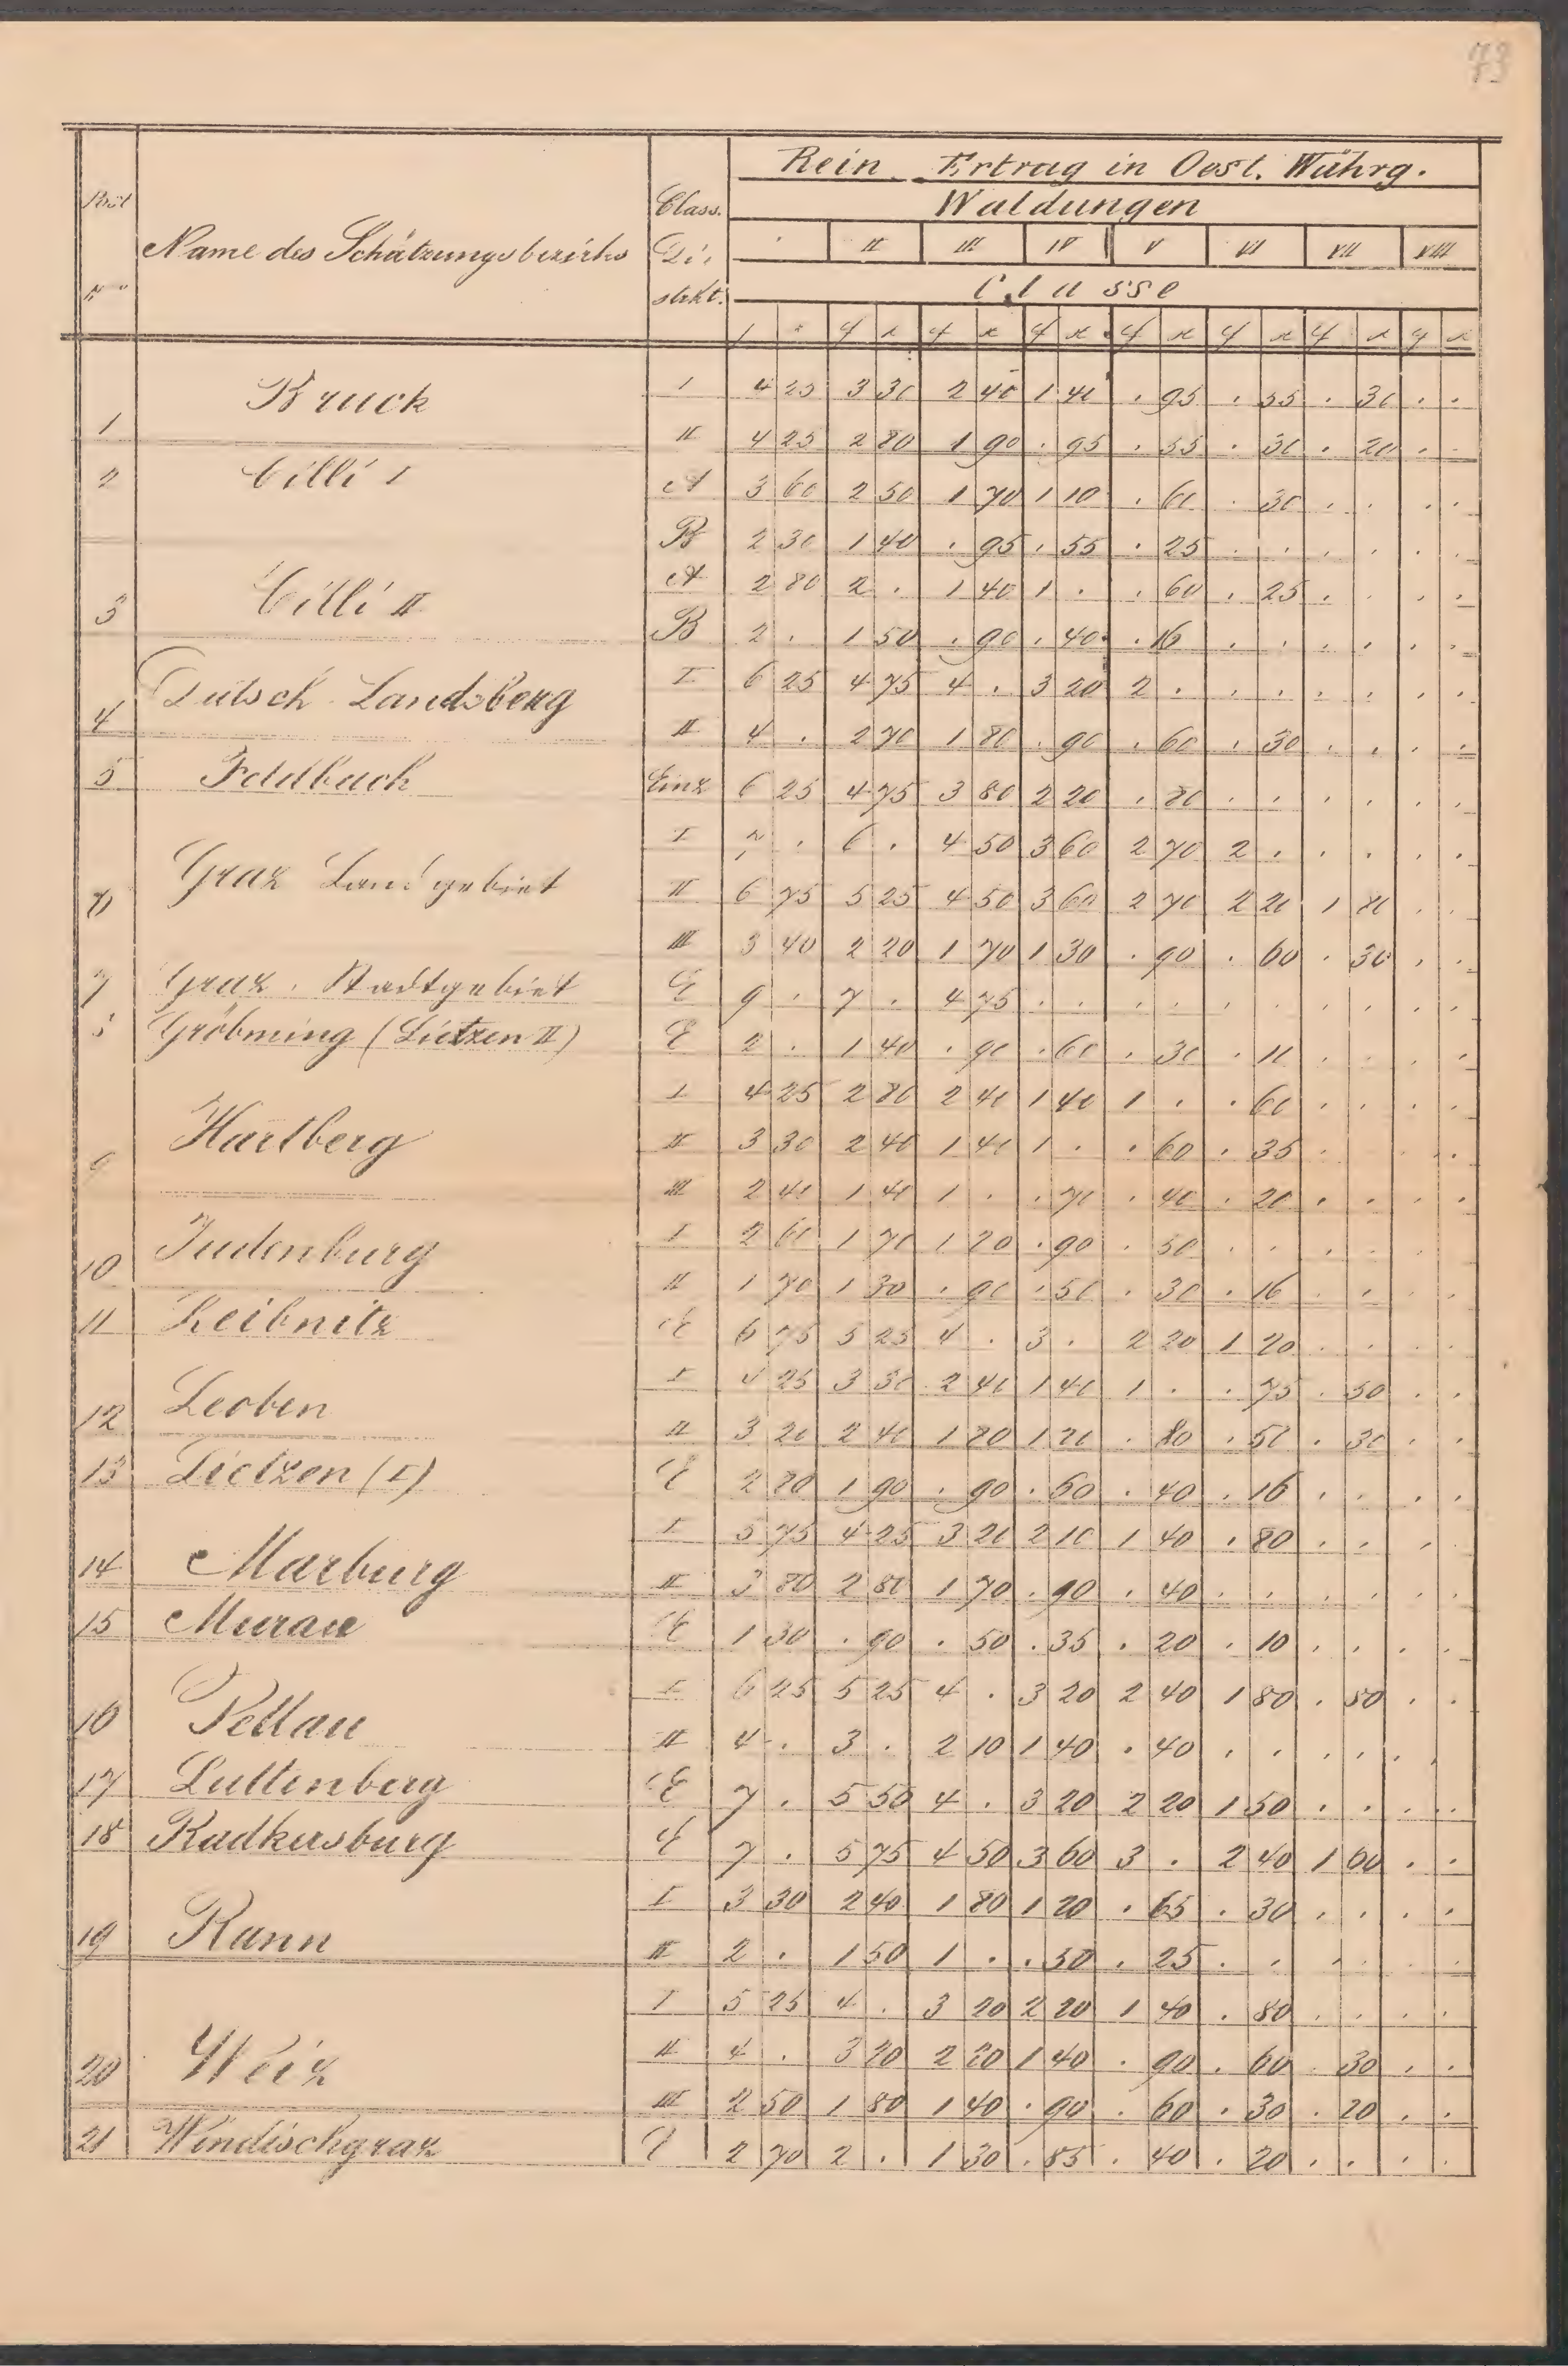 73
Rein Ertrag in Oest. Währg.
Waldungen
Post Nro
Name des Schätzungsbezirks
Class. Di- strkt.
II III IV V VI VII VIII
Classe
f x f x f x f x f x f x f x
1 Bruck I 4 25 3 30 2 40 1 40 . 95 . 55 . 30 . .
II 4 25 2 80 1 90 . 95 . 55 . 30 . 20 . .
2 Cilli I A 3 60 2 50 1 70 1 10 . 60 . 30 . . . .
B 2 30 1 40 . 95 . 55 . 25 . . . . . .
3 Cilli II A 2 80 2 . 1 40 1 . . 60 . 25 . . . .
B 2 . 1 50 . 90 . 40 . 16 . . . . . .
4 Deutsch Landsberg I 6 25 4 75 4 . 3 20 2 . . . . . . .
II 4 . 2 70 1 80 . 90 . 60 . 30 . . . .
5 Feldbach Einz 6 25 4 75 3 80 2 20 . 80 . . . . . .
Graz Landgebiet I 7 . 6 . 4 50 3 60 2 70 2 . . . . .
II 6 75 5 25 4 50 3 60 2 70 2 20 1 80 . .
III 3 40 2 20 1 70 1 30 . 90 . 60 . 30 . .
7 Graz . Stadtgebiet E 9 . 7 . 4 75 . . . . . . . . . .
8 Gröbming (Lietzen II) E 2 . 1 40 . 90 . 60 . 30 . 10 . . . .
9 Hartberg I 4 25 2 80 2 40 1 40 1 . . 60 . . . .
II 3 30 2 40 1 40 1 . . 60 . 35 . . . .
III 2 40 1 40 1 . . 70 . 40 . 20 . . . .
10 Judenburg I 2 60 1 70 1 20 . 90 . 50 . . . . . .
II 1 70 1 30 . 90 . 50 . 30 . 16 . . . .
11 Leibnitz E 6 75 5 25 4 . 3 . 2 20 1 20 . . . .
12 Leoben I 4 25 3 30 2 40 1 40 1 . . 75 . 50 . .
II 3 20 2 40 1 80 1 20 . 80 . 50 . 30 . .
13 Lietzen (I) E 2 80 1 90 . 90 . 60 . 40 . 16 . . . .
14 Marburg I 5 75 4 25 3 20 2 10 1 40 . 80 . . . .
II 3 80 2 80 1 70 . 90 . 40 . . . . . .
15 Murau E 1 30 . 90 . 50 . 35 . 20 . 10 . . . .
16 Pettau I 6 25 5 25 4 . 3 20 2 40 1 80 . 80 . .
II 4 . 3 . 2 10 1 40 . 40 . . . . . .
17 Luttenberg E 7 . 5 50 4 . 3 20 2 20 1 50 . . . .
18 Radkersburg E 7 . 5 75 4 50 3 60 3 . 2 40 1 60 . .
19 Rann I 3 30 2 40 1 80 1 20 . 65 . 30 . . . .
II 2 . 1 50 1 . . 50 . 25 . . . . . .
20 Weiz I 5 25 4 . 3 20 2 20 1 40 . 80 . . . .
II 4 . 3 20 2 20 1 40 . 90 . 60 . 30 . .
III 2 50 1 80 1 40 . 90 . 60 . 30 . 20 . .
21 Windischgraz E 2 70 2 . 1 30 . 85 . 40 . 20 . . . .